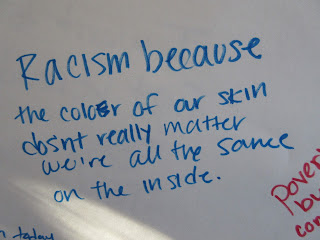 Racism because
the color of our skin
dosnt really matter
we're all the same
on the inside.
pover
bu
con
n today